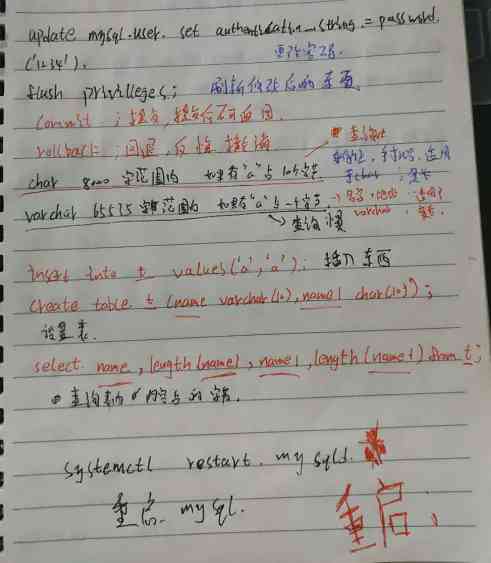 update mysql.user. set authentication_string = password.
('1234').
更改密码.
flush privileges; 刷新修改后的东西.
commit ; 提交, 提交后不可回用.
rollback ; 回退, 反悔 撤消
查询快
char 8000 字范围内 如果有"a"占10字节 身份证, 手机号, 适用于char
varchar 65535 字范围内 如果有"a"占一个字节 → 名字, 地址 适用于varchar
→ 查询慢
insert into t values('a','a'); 插入东西
create table t (name varchar(10), name1 char(10));
设置表.
select name, length(name), name1, length(name1) from t;
查询表内内容占的字节.
systemctl restart. mysqld.
重启. mysql.
重启;